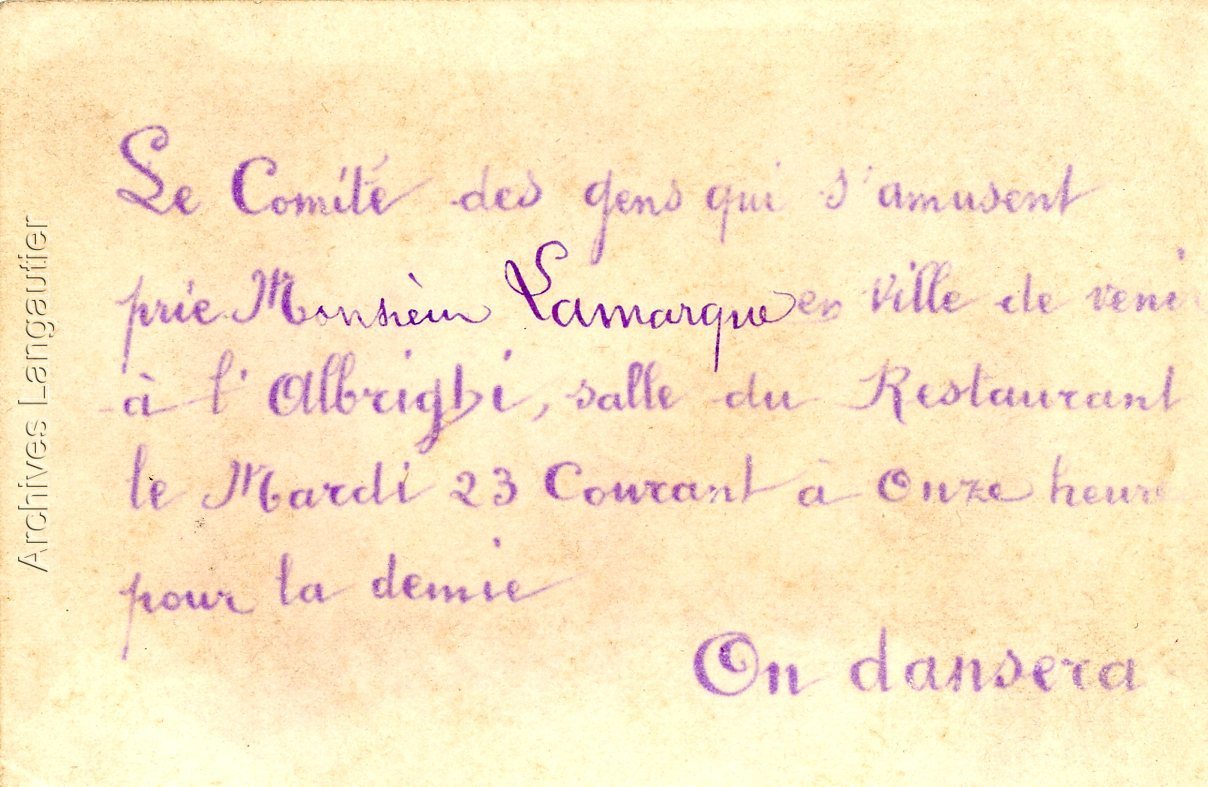 Le Comité des gens qui s'amusent
prie Monsieur Lamarque en ville de venir
à l'Albrighi, salle du Restaurant
le Mardi 23 Courant à Onze heure
pour la demie
On dansera
Archives Langautier